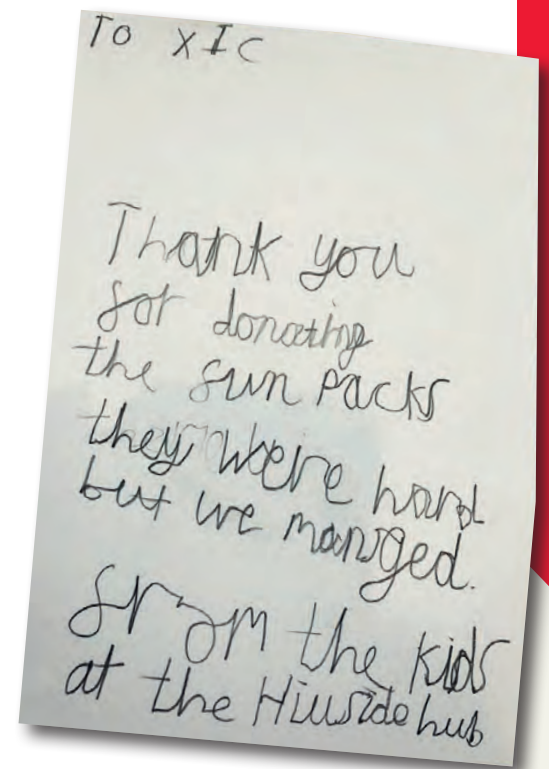 To XIC
Thank you
for donating
the fun packs
they were hard
but we managed.
from the kids
at the Hillside hub